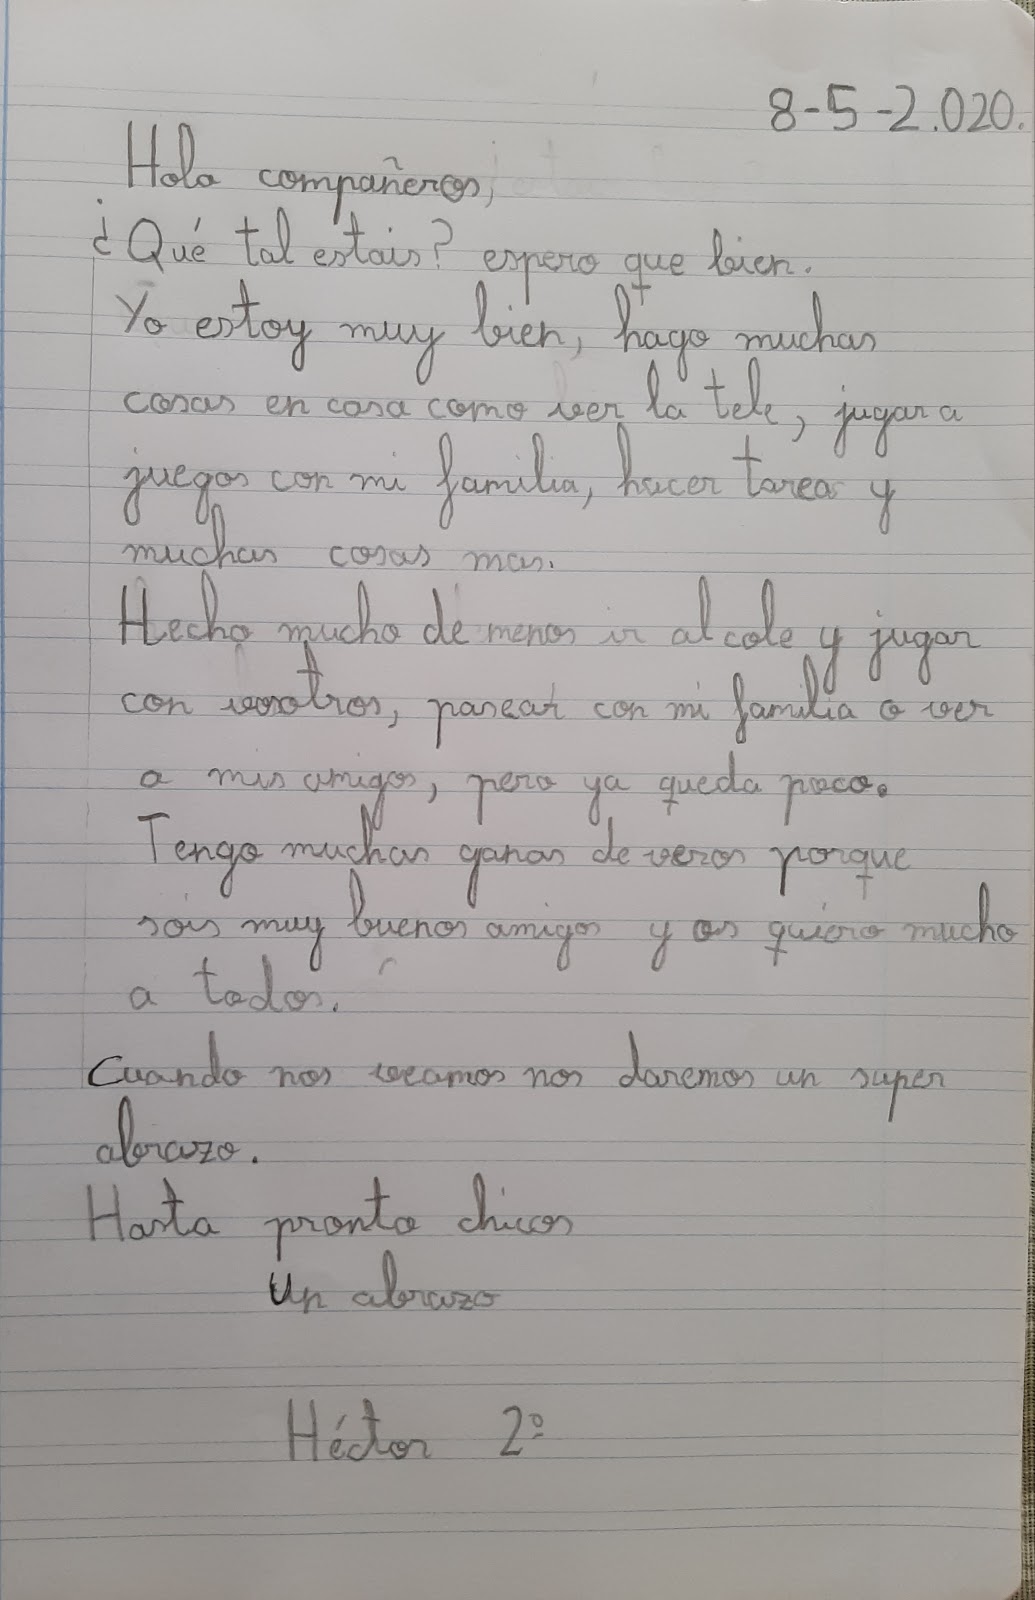 8-5-2.020.
Hola compañeros,
¿Qué tal estais? espero que bien.
Yo estoy muy bien, hago muchas
cosas en casa como ver la tele, jugar a
juegos con mi familia, hacer tareas y
muchas cosas mas.
Hecho mucho de menos ir al cole y jugar
con vosotros, pasear con mi familia o ver
a mis amigos, pero ya queda poco.
Tengo muchas ganas de veros porque
sois muy buenos amigos y os quiero mucho
a todos.
Cuando nos veamos nos daremos un super
abrazo.
Hasta pronto chicos
Un abrazo
Héctor 2º